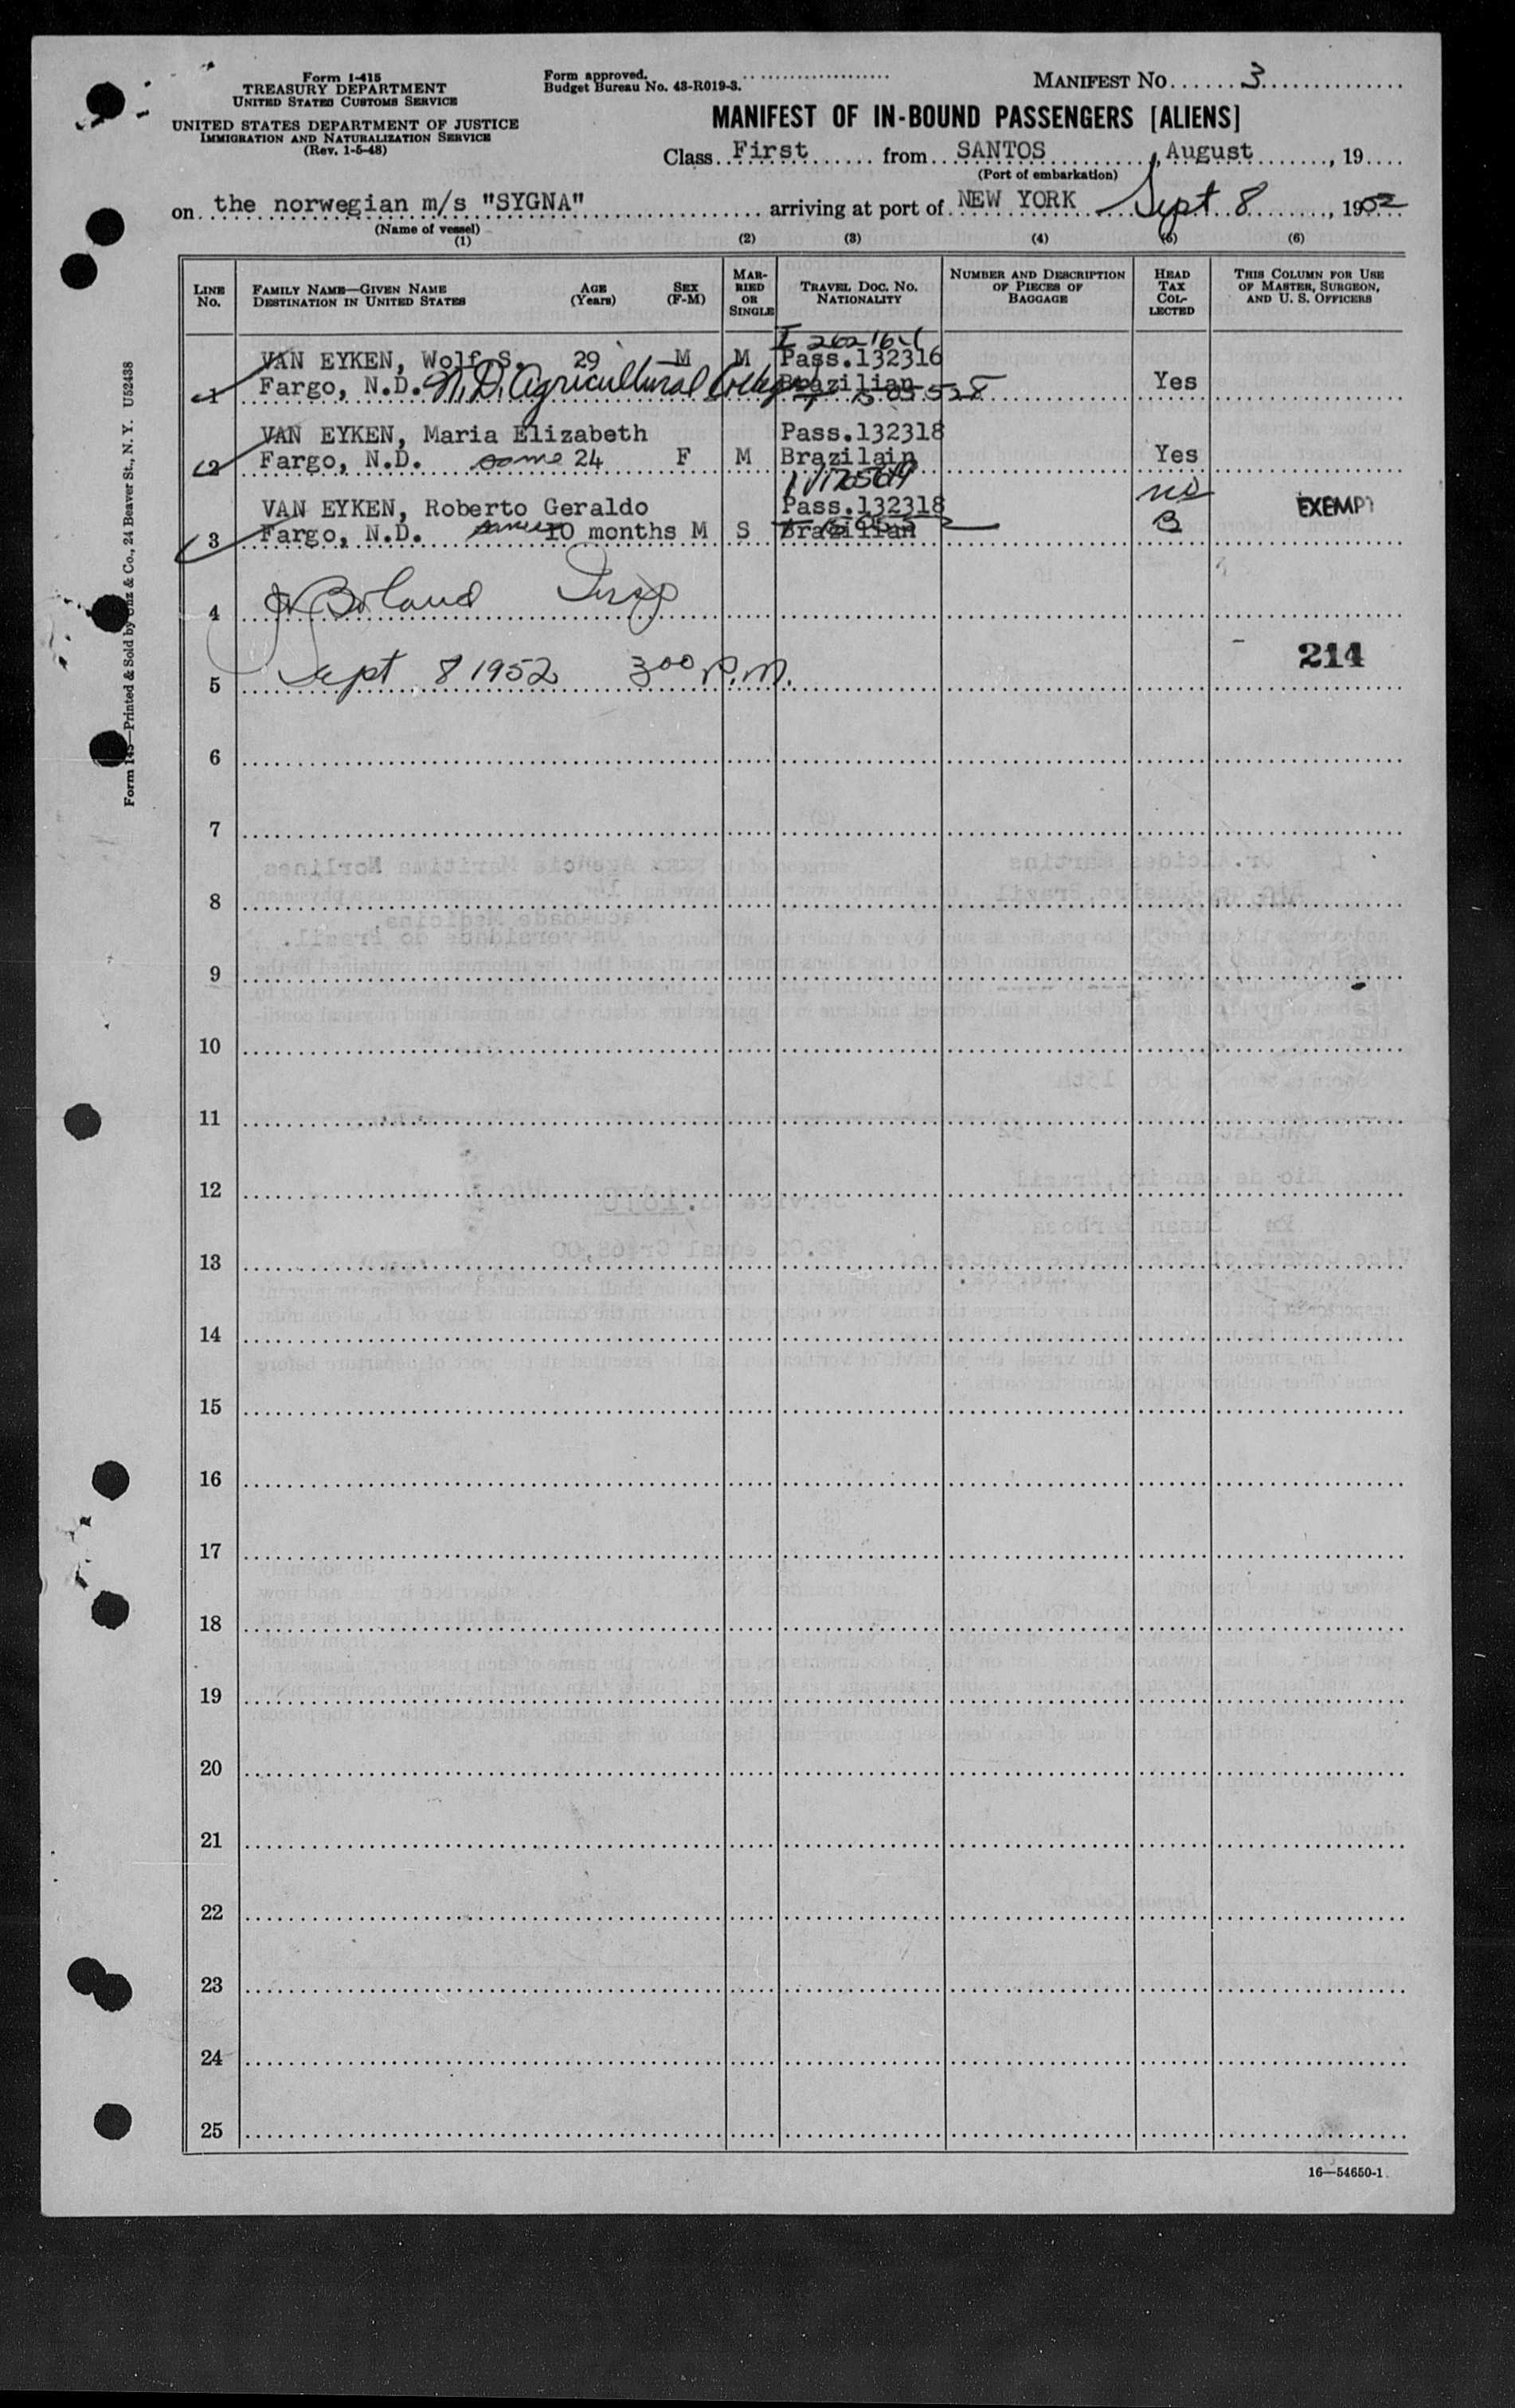 Form I-415
TREASURY DEPARTMENT
UNITED STATES CUSTOMS SERVICE
UNITED STATES DEPARTMENT OF JUSTICE
IMMIGRATION AND NATURALIZATION SERVICE
(Rev. 1-5-48)
Form approved.
Budget Bureau No. 43-R019-3.
MANIFEST NO. 3
MANIFEST OF IN-BOUND PASSENGERS [ALIENS]
Class First from SANTOS, August, 19
(Port of embarkation)
on the norwegian m/s "SYGNA" arriving at port of NEW YORK Sept 8, 1952
(Name of vessel)
(1) (2) (3) (4) (5) (6)
LINE No.
FAMILY NAME—GIVEN NAME
DESTINATION IN UNITED STATES
AGE (Years)
SEX (F-M)
MARRIED OR SINGLE
TRAVEL DOC. NO.
NATIONALITY
NUMBER AND DESCRIPTION OF PIECES OF BAGGAGE
HEAD TAX COLLECTED
THIS COLUMN FOR USE OF MASTER, SURGEON, AND U. S. OFFICERS
VAN EYKEN, Wolf S. 29 M M Pass.132316
1 Fargo, N.D. N.D. Agricultural College Brazilian Yes
VAN EYKEN, Maria Elizabeth Pass.132318
2 Fargo, N.D. same 24 F M Brazilain Yes
VAN EYKEN, Roberto Geraldo Pass.132318 no EXEMPT
3 Fargo, N.D. same 10 months M S Brazilian B
4 Boland Insp
5 Sept 8 1952 3 00 P.M. 214
6
7
8
9
10
11
12
13
14
15
16
17
18
19
20
21
22
23
24
25
16—54650-1
Form 145—Printed & Sold by Unz & Co., 24 Beaver St., N. Y. U52438